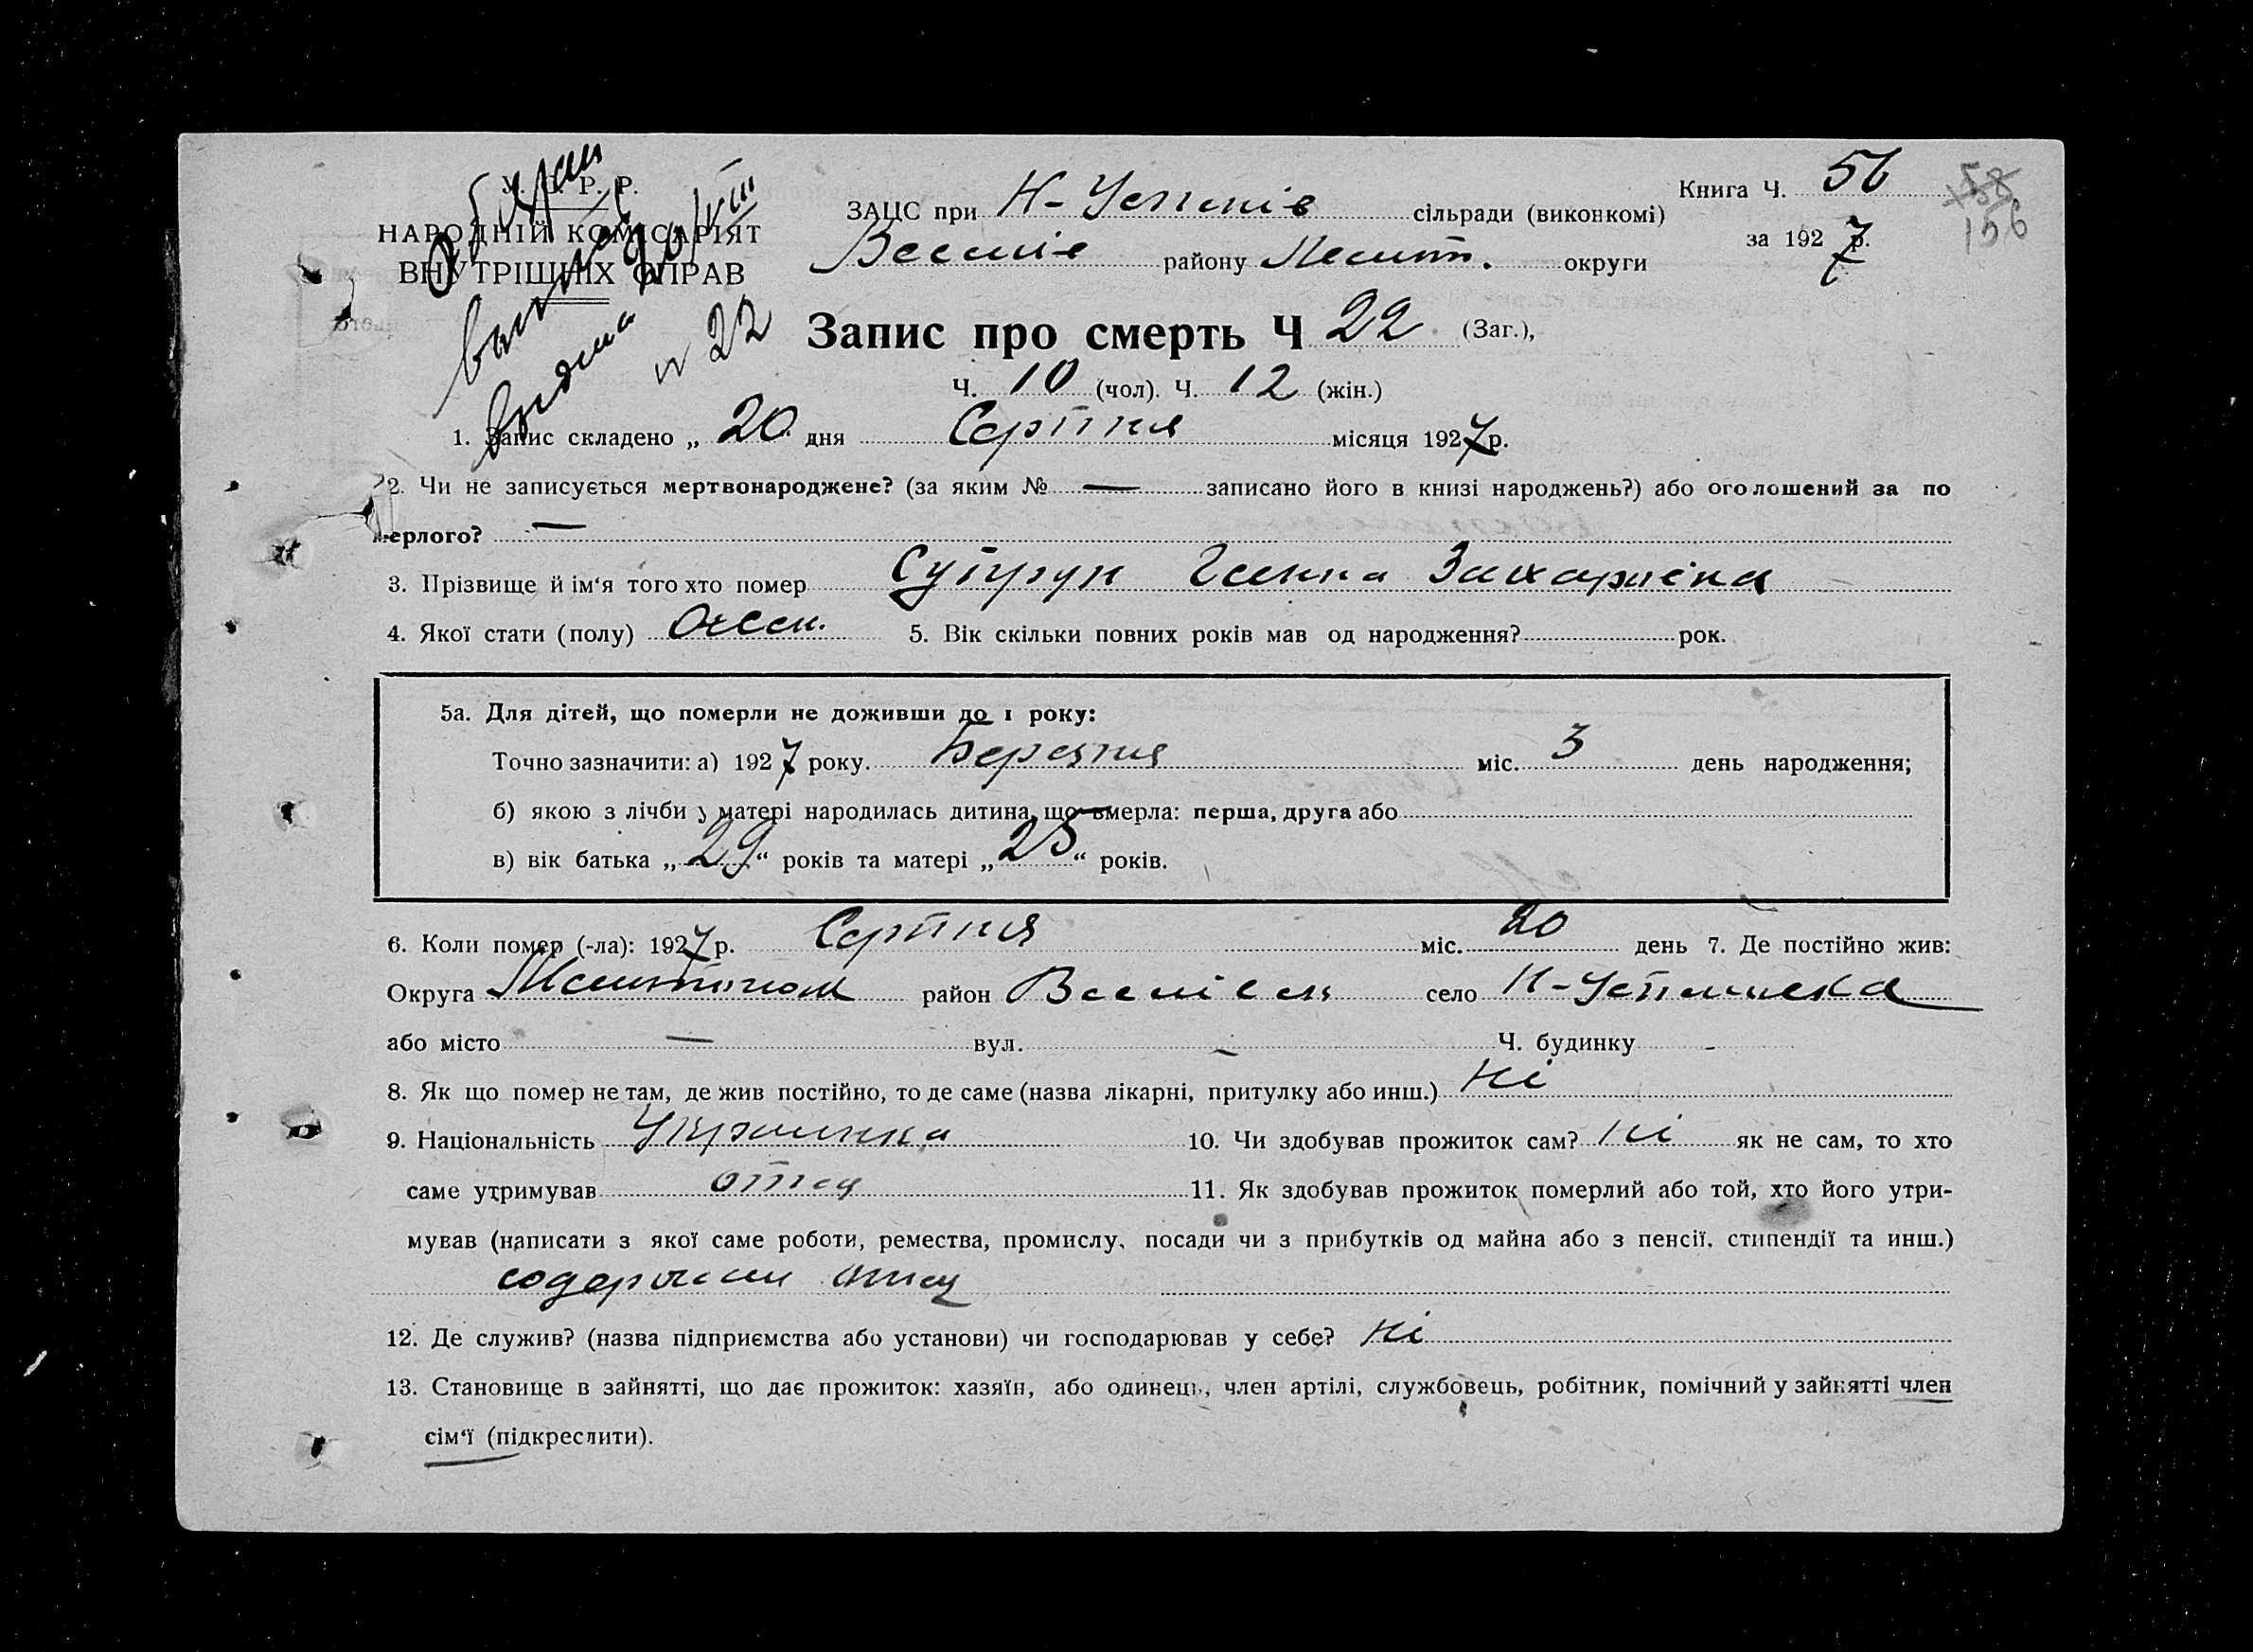 У. С. Р. Р.
НАРОДНІЙ КОМІСАРІЯТ
ВНУТРІШНІХ СПРАВ
№ 22
Книга Ч. 56
156
за 1927 р.
ЗАЦС при Н-Успенів сільради (виконкомі)
Веселів району Меліт. округи
Запис про смерть Ч 22 (Заг.),
Ч. 10 (чол). Ч. 12 (жін.)
1. Запис складено „ 20 дня Серпня місяця 1927 р.
2. Чи не записується мертвонароджене? (за яким № — записано його в книзі народжень?) або оголошений за по
мерлого? —
3. Прізвище й ім‘я того хто помер Супрун Ганна Захарівна
4. Якої стати (полу) Жен. 5. Вік скільки повних років мав од народження? рок.
5а. Для дітей, що померли не доживши до 1 року:
Точно зазначити: а) 1927 року. Березня міс. 3 день народження;
б) якою з лічби у матері народилась дитина, що вмерла: перша, друга або
в) вік батька „ 29 “ років та матері „ 25 “ років.
6. Коли помер (-ла): 1927 р. Серпня міс. 20 день 7. Де постійно жив:
Округа район село Н-Успенівка
або місто — вул. – Ч. будинку -
8. Як що помер не там, де жив постійно, то де саме (назва лікарні, притулку або инш.) Ні
9. Національність Украинка 10. Чи здобував прожиток сам? Ні як не сам, то хто
саме утримував отец 11. Як здобував прожиток померлий або той, хто його утри-
мував (написати з якої саме роботи, ремества, промислу, посади чи з прибутків од майна або з пенсії, стипендії та инш.)
содержал отец
12. Де служив? (назва підприємства або установи) чи господарював у себе? Ні
13. Становище в зайнятті, що дає прожиток: хазяїн, або одинець, член артілі, службовець, робітник, помічний у зайнятті член
сім‘ї (підкреслити).